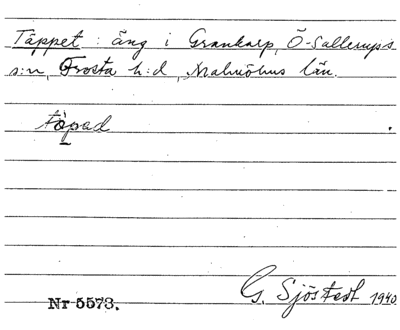 Täppet: äng i Grankarp, Ö-Sallerups
s:n, Frosta h:d, Malmöhus län.
töpad
Nr 5573. G. Sjöstedt 1940